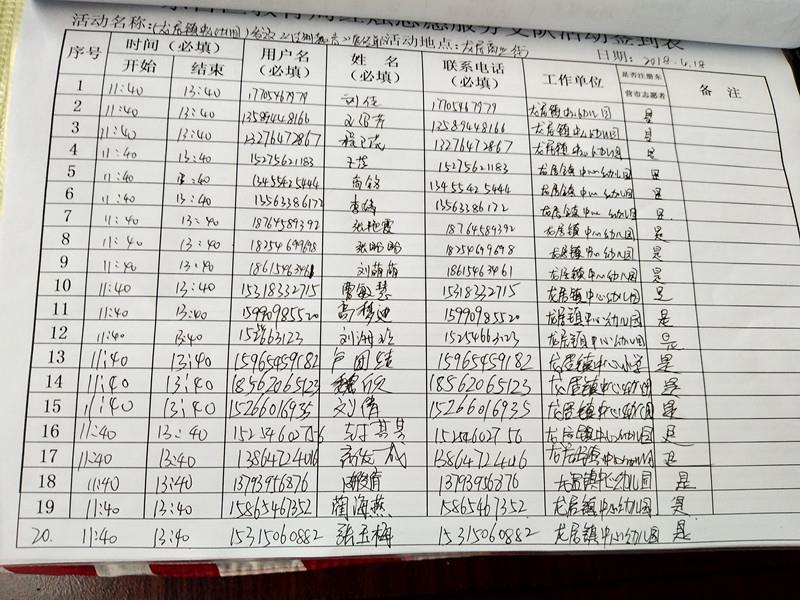 活动名称:(龙居镇中心幼儿园) 活动地点:龙居商业街
日期: 2018.4.18
序号 时间(必填) 用户名(必填) 姓名(必填) 联系电话(必填) 工作单位 是否注册东营市志愿者 备注
开始 结束
1 11:40 13:40 17705467979 刘佳 17705467979 龙居镇中心幼儿园 是
2 11:40 13:40 13589448166 13589448166 龙居镇中心幼儿园 是
3 11:40 13:40 13276472867 13276472867 龙居镇中心幼儿园 是
4 11:40 13:40 15275621183 15275621183 龙居镇中心幼儿园 是
5 11:40 13:40 13455425444 13455425444 龙居镇中心幼儿园 是
6 11:40 13:40 13563386172 李倩 13563386172 龙居镇中心幼儿园 是
7 11:40 13:40 18764589392 张艳霞 18764589392 龙居镇中心幼儿园 是
8 11:40 13:40 18254699698 张盼盼 18254699698 龙居镇中心幼儿园 是
9 11:40 13:40 18615463461 刘萌萌 18615463461 龙居镇中心幼儿园 是
10 11:40 13:40 15318332715 曹敏慧 15318332715 龙居镇中心幼儿园 是
11 11:40 13:40 15990985520 高梦迪 15990985520 龙居镇中心幼儿园 是
12 11:40 13:40 15254663123 刘海玲 15254663123 龙居镇中心幼儿园 是
13 11:40 13:40 15965459182 卢团结 15965459182 龙居镇中心小学 是
14 11:40 13:40 18562065123 魏欣 18562065123 龙居镇中心幼儿园 是
15 11:40 13:40 15266016935 刘倩 15266016935 龙居镇中心幼儿园 是
16 11:40 13:40 15254602756 15254602756 龙居镇中心幼儿园 是
17 11:40 13:40 13864724016 13864724016 龙居镇中心幼儿园 是
18 11:40 13:40 13793956876 13793956876 龙居镇中心幼儿园 是
19 11:40 13:40 15865467352 蔺海燕 15865467352 龙居镇中心幼儿园 是
20. 11:40 13:40 15315060882 张玉梅 15315060882 龙居镇中心幼儿园 是